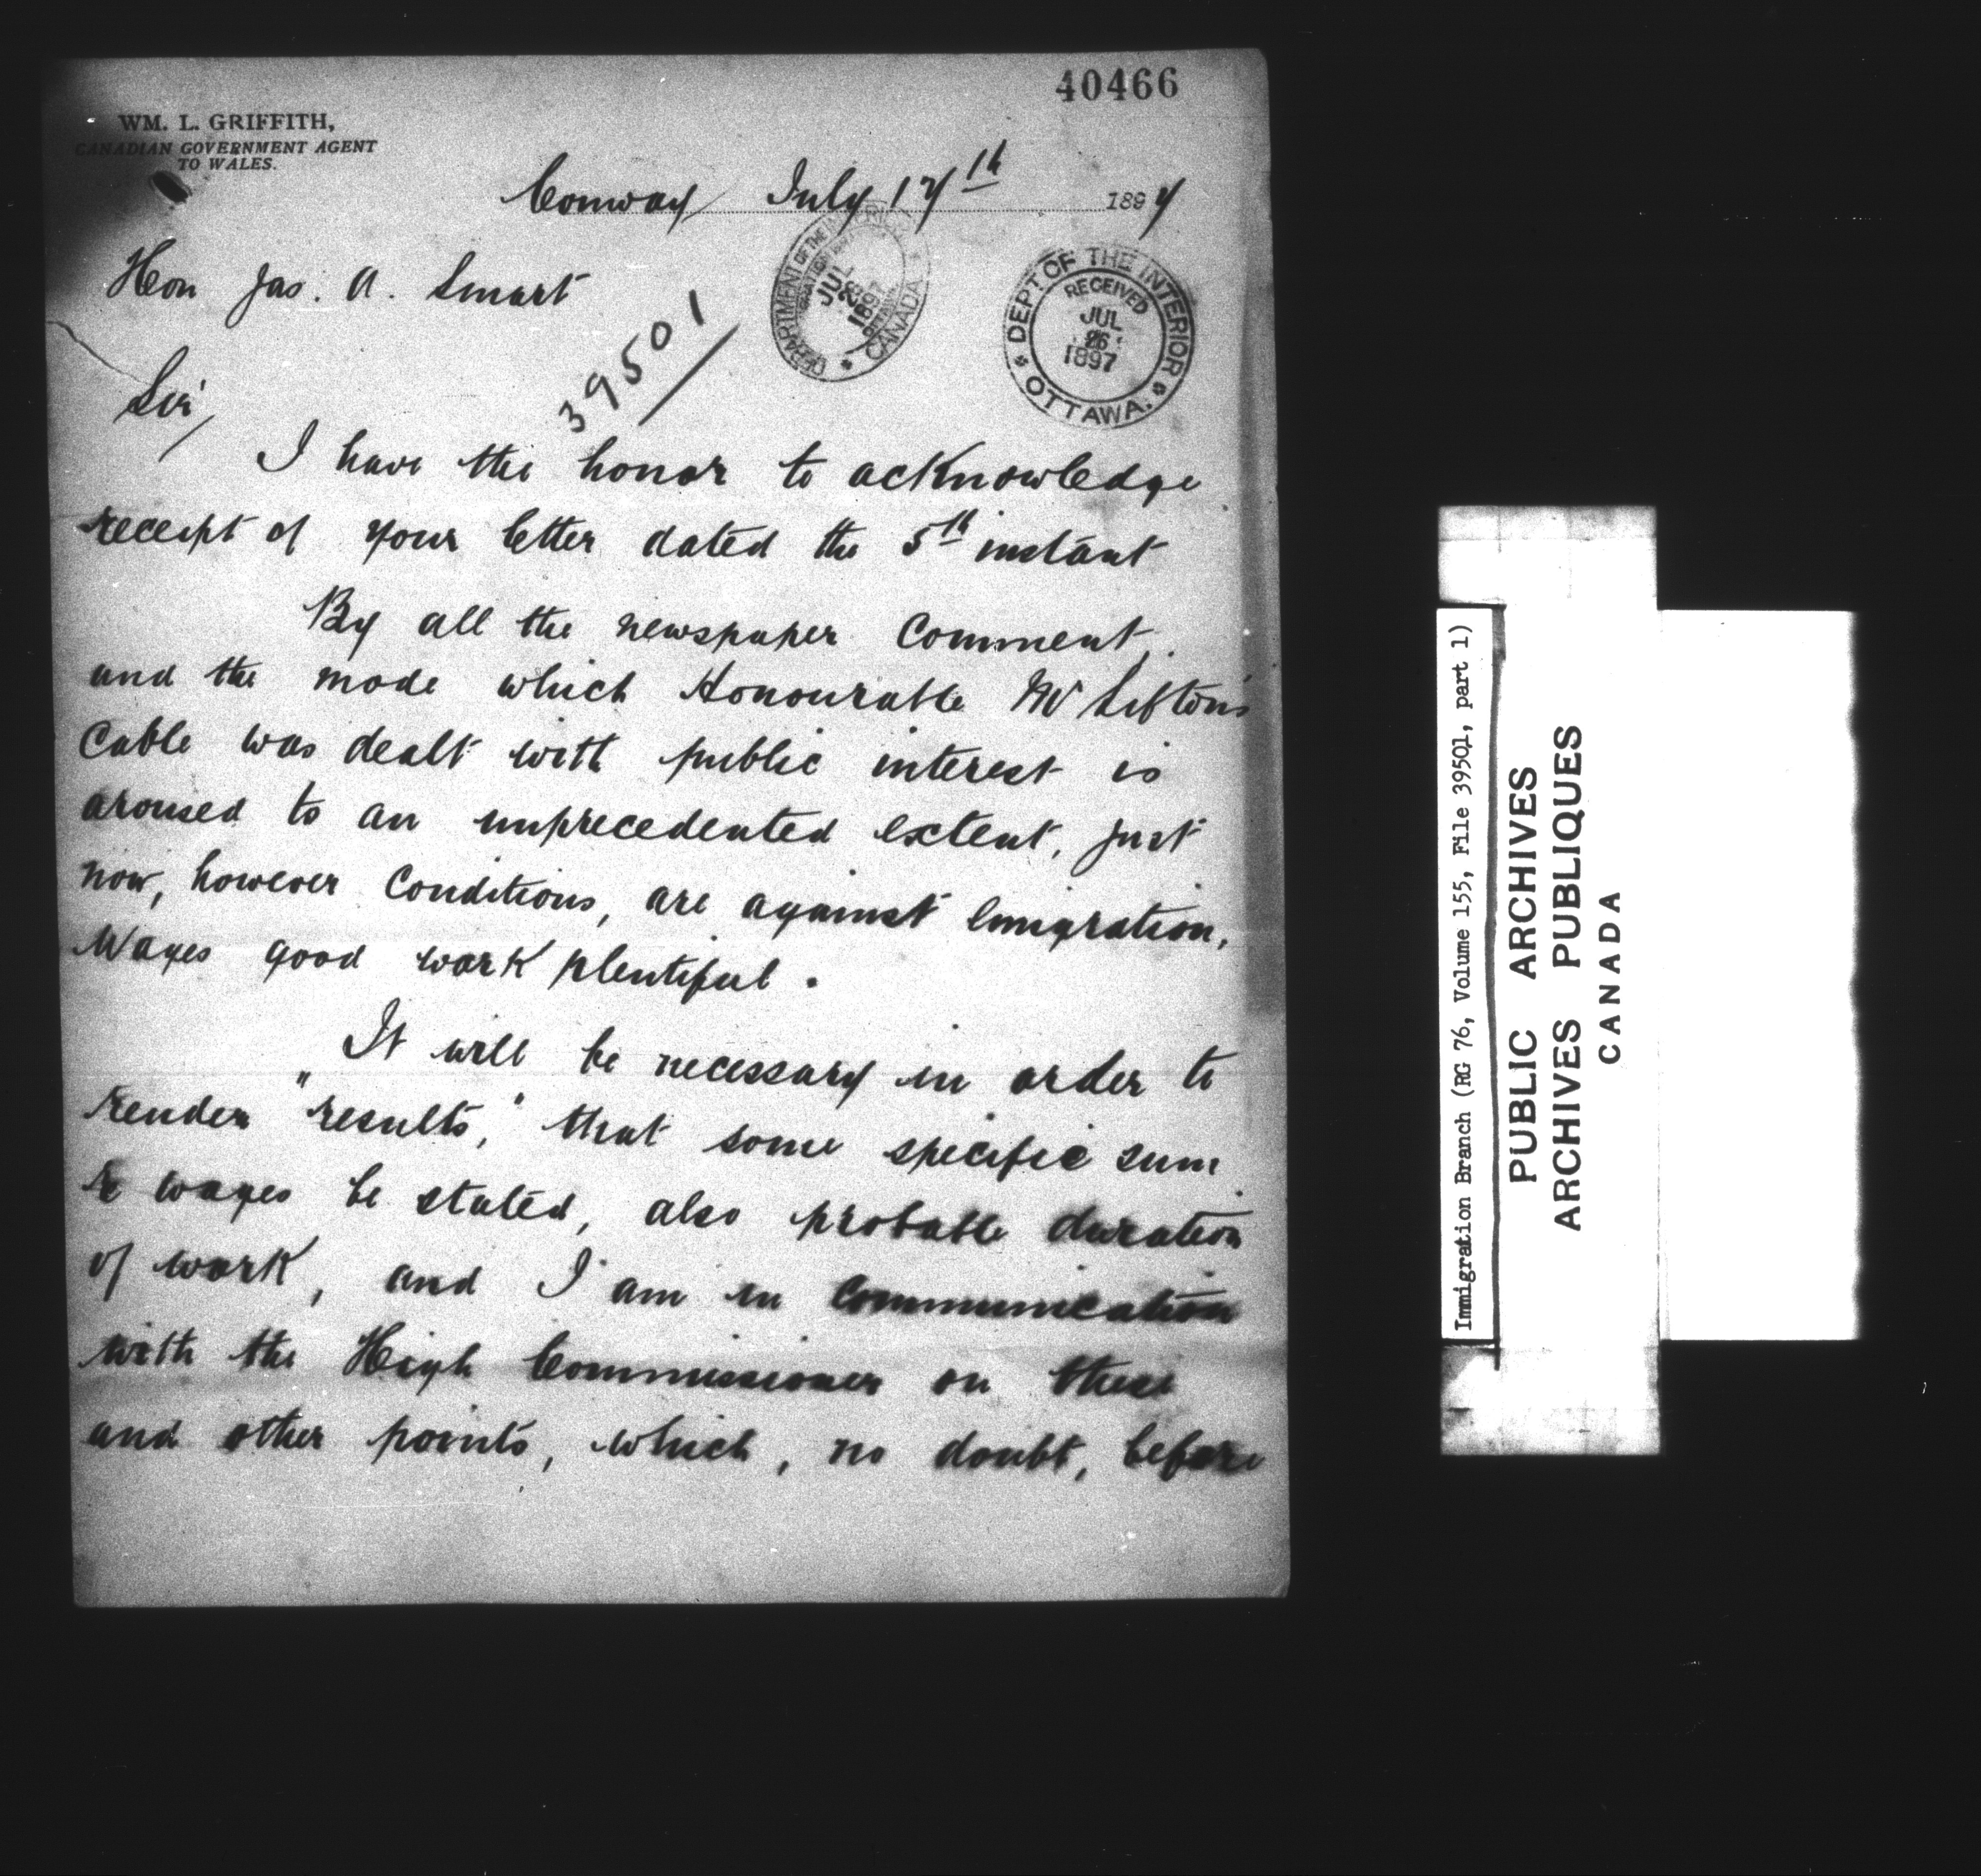 40466
WM. L. GRIFFITH,
CANADIAN GOVERNMENT AGENT
TO WALES.
Conway July 17th 1897
Hon Jas. A. Smart
39501
DEPARTMENT OF THE INTERIOR
JUL
26
1897
OTTAWA
CANADA
DEPT OF THE INTERIOR
RECEIVED
JUL
26
1897
OTTAWA.
Sir,
I have the honor to acknowledge
receipt of your letter dated the 5th instant
By all the newspaper Comment,
and the mode which Honourable Mr Sifton's
Cable was dealt with public interest is
aroused to an unprecedented extent, just
now, however Conditions, are against Emigration,
Wages good work plentiful.
It will be necessary in order to
render "results," that some specific sum
re wages be stated, also probable duration
of work, and I am in Communication
with the High Commissioner on these
and other points, which, no doubt, before
Immigration Branch (RG 76, Volume 155, File 39501, part 1)
PUBLIC ARCHIVES
ARCHIVES PUBLIQUES
CANADA